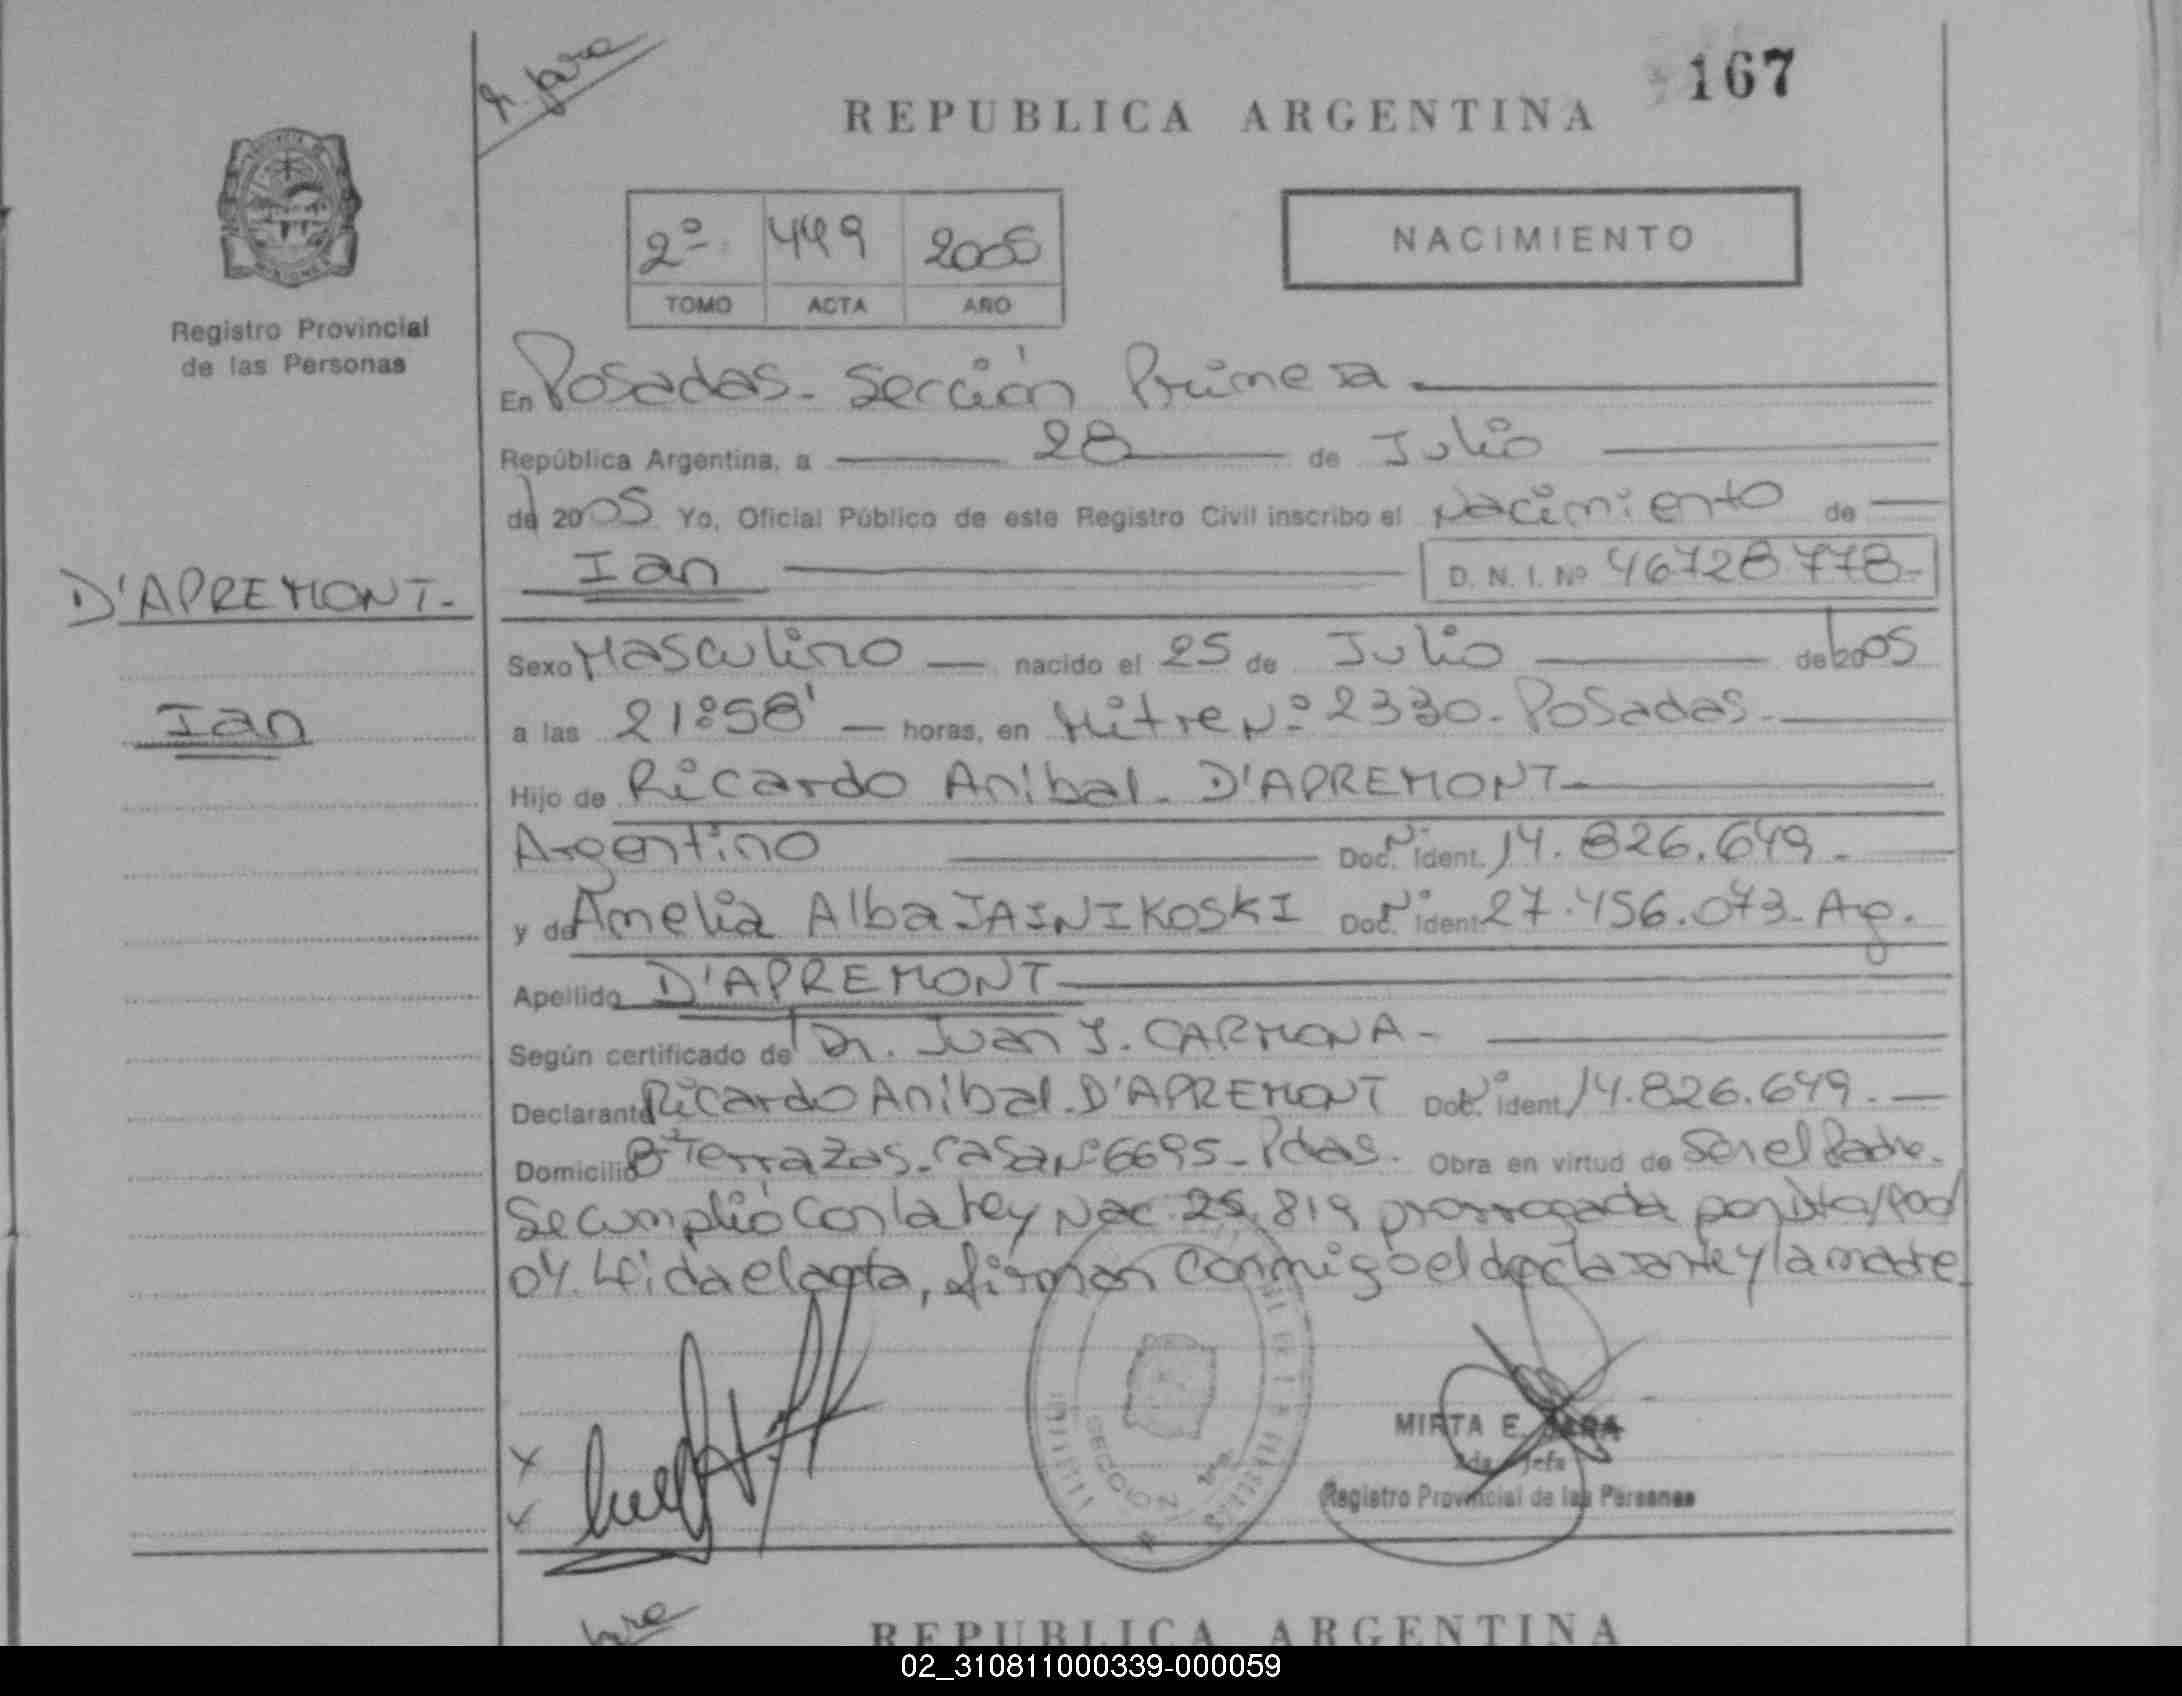 167
REPUBLICA ARGENTINA
2º 449 2005
TOMO ACTA AÑO
NACIMIENTO
Registro Provincial
de las Personas
En Posadas - Sección Primera
República Argentina, a 28 de Julio
de 2005 Yo, Oficial Público de este Registro Civil inscribo el Nacimiento de
Ian D. N. I. Nº 46728778-
D'APREMONT-
Ian
Sexo Masculino nacido el 25 de Julio de 2005
a las 21:58' horas, en Mitre Nº 2330- Posadas-
Hijo de Ricardo Anibal - D'APREMONT
Argentino Doc. Nº ident. 14.826.649 -
y de Amelia Alba JAINIKOSKI Doc. Nº ident. 27.456.073- Arg.
Apellido D'APREMONT
Según certificado de Dr. Juan J. CARMONA -
Declarante Ricardo Anibal - D'APREMONT Doc. Nº ident. 14.826.649. -
Domicilio Bº Terrazas - Casa Nº 6695 - Pdas. Obra en virtud de Ser el Padre -
Se cumplió con la Ley Nac 25.819 prorrogada por
04. Leída el acta, firman conmigo el declarante y la madre
SECCION 1ra
MIRTA E.
Jefa
Registro Provincial de las Personas
REPUBLICA ARGENTINA
02_310811000339-000059